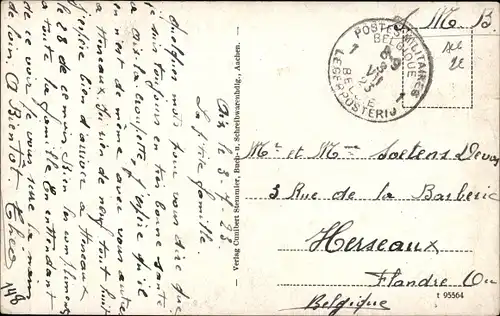 Aix le 5-7-23
La p'tite famille.
Quelques mots pour vous dire que
je suis toujours en très bonne santé
à la croupette, j'espère qu'il
en n'est de même avec vous autre
à Herseaux, du rien de neuf tout huit
j'espère bien d'arriver à Herseaux
le 28 de ce mois. Bien les compliments
à toute la famille en entendant
de ce voir je vous serre la main
de loin. A Bientôt
148
Verlag Cunibert Stemmler, Buch- u. Schreibwarenhdlg., Aachen.
S. M. B.
POSTES MILITAIRES
BELGIQUE
7
8-9
VII
23
BELGIE
LEGERPOSTERIJ
Mr et Mme Soetens Devos
3 Rue de la Barberie
Herseaux
Flandre Occ
Belgique
t 95564